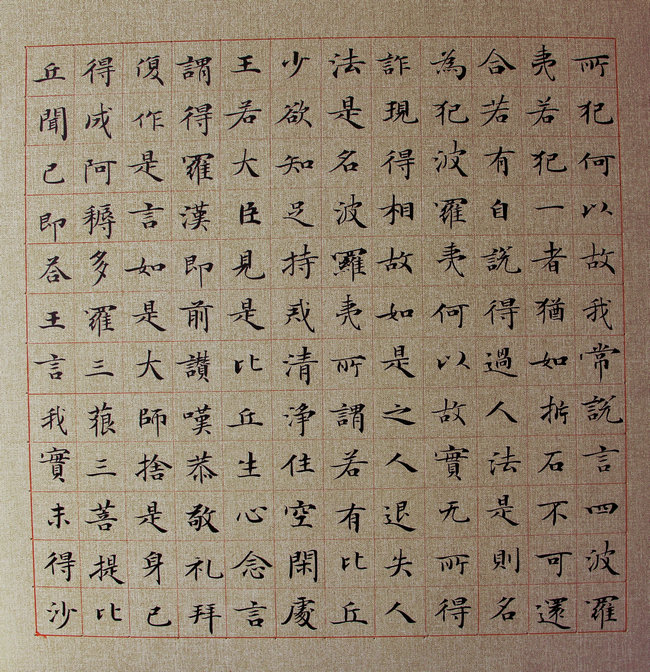 所犯何以故我常說言四波羅
夷若犯一者猶如㭊石不可還
合若有自說得過人法是則名
為犯波羅夷何以故實无所得
詐現得相故如是之人退失人
法是名波羅夷所謂若有比丘
少欲知足持戒清淨住空閑處
王若大臣見是比丘生心念言
謂得羅漢即前讚嘆恭敬礼拜
復作是言如是大師捨是身已
得成阿耨多羅三藐三菩提比
丘聞已即荅王言我實未得沙